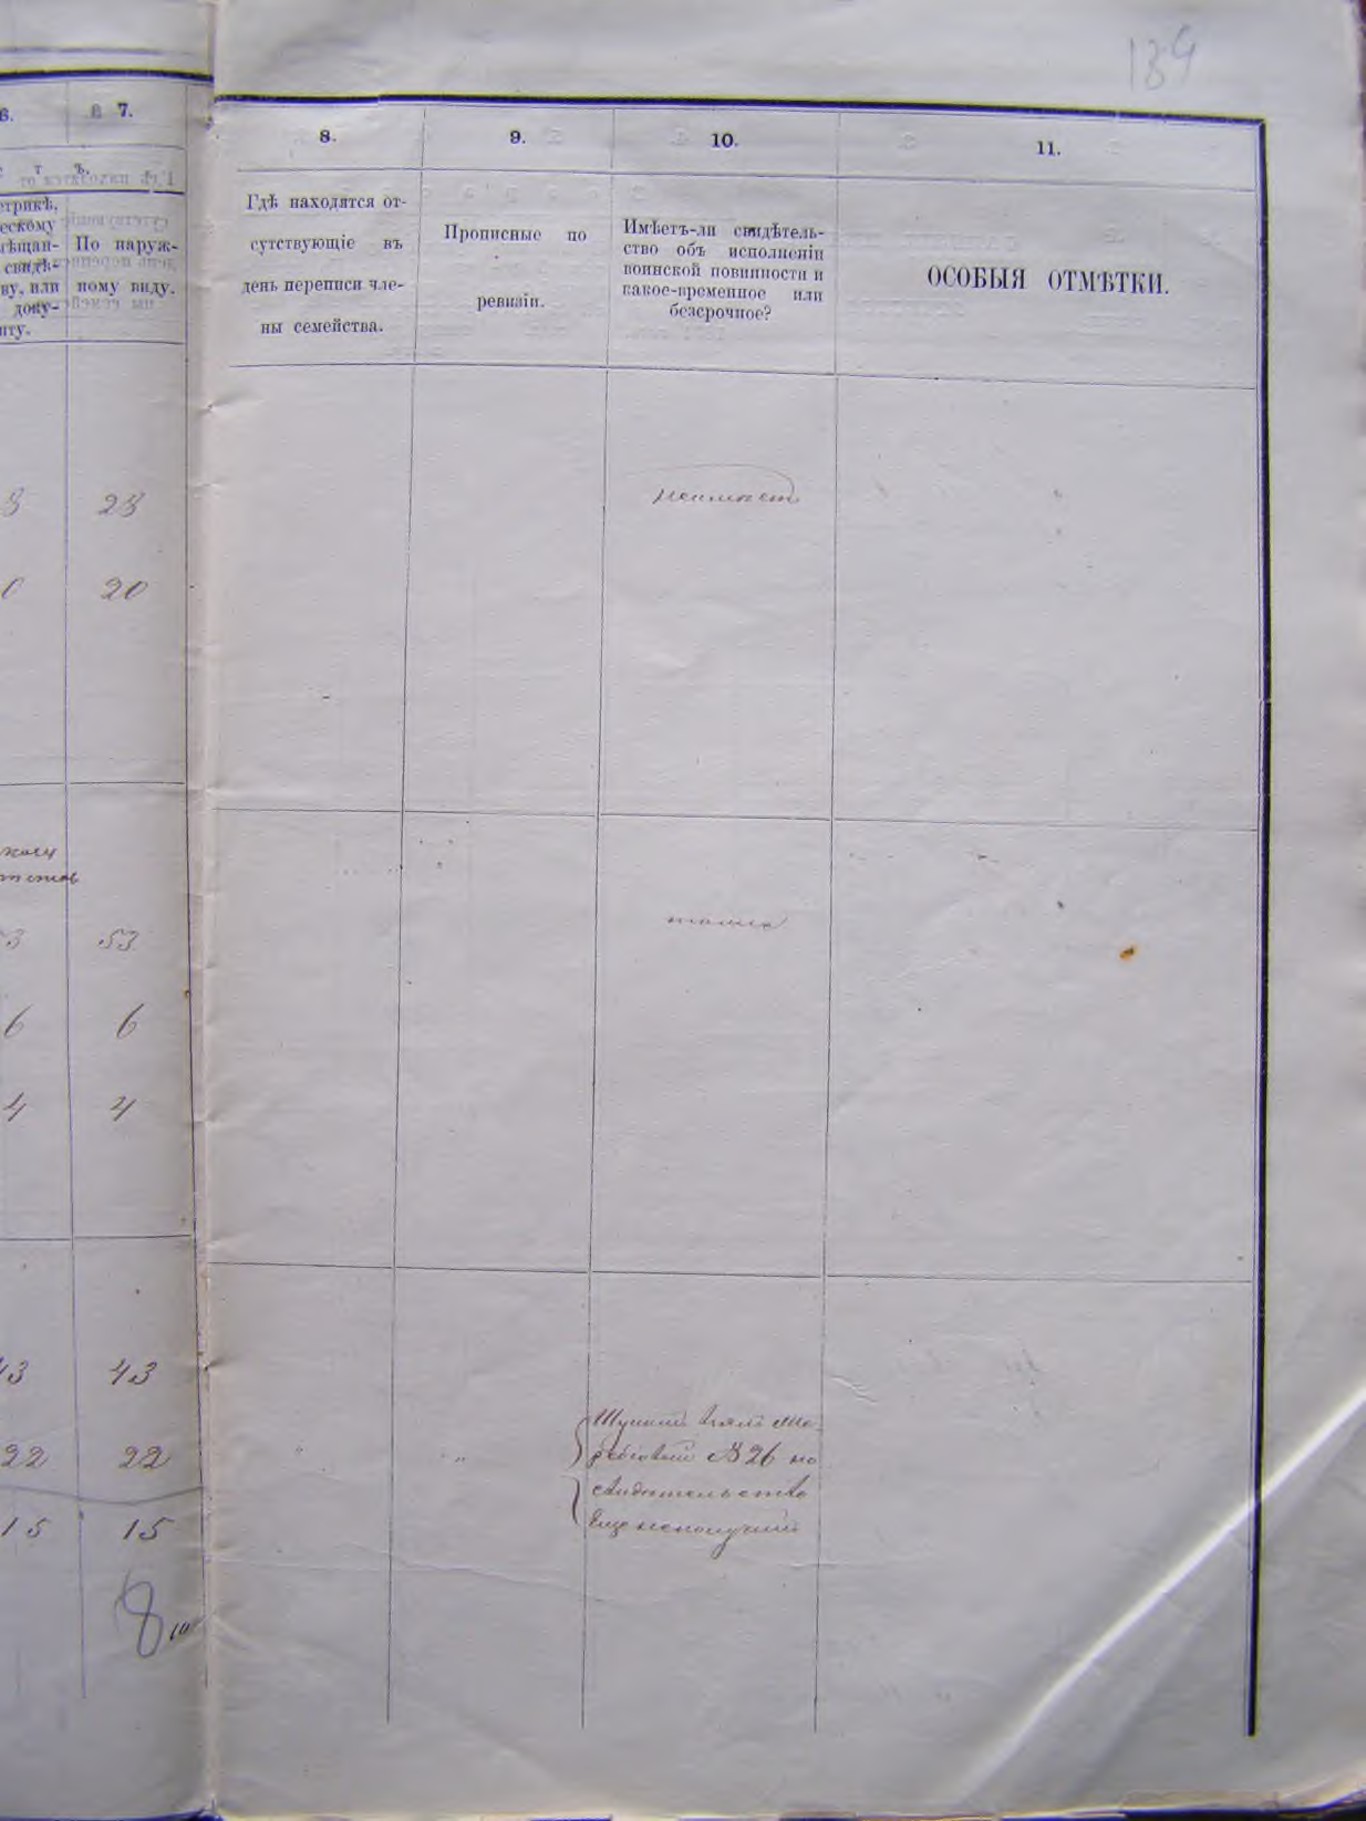 139
6.
7.
8.
9.
10.
11.
т ъ.
етрикѣ,
ескому
свидѣ-
ву, или
доку-
нту.
По наруж-
ному виду.
Гдѣ находятся от-
сутствующіе въ
день переписи чле-
ны семейства.
Прописные по
ревизіи.
Имѣетъ-ли свидѣтель-
ство объ исполненіи
воинской повинности и
какое-временное или
безсрочное?
ОСОБЫЯ ОТМѢТКИ.
8 28
неимѣет
0 20
3 53
тоже
6 6
4 4
43 43
22 22
№ 26 но
свидѣтельства
еще неполучилъ
15 15
8